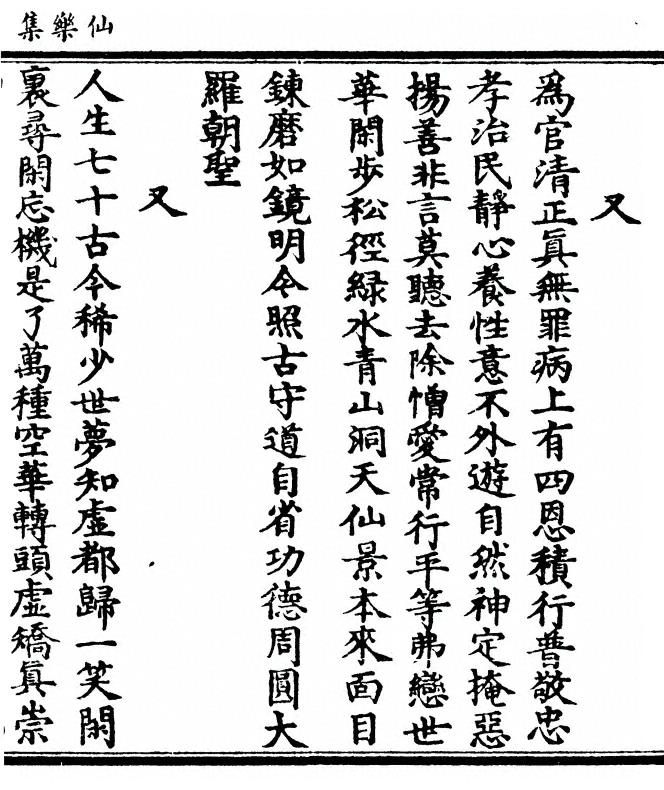 仙樂集
又
為官清正真無罪病上有四恩積行普敬忠
孝治民靜心養性意不外遊自然神定掩惡
揚善非言莫聽去除憎愛常行平等弗戀世
華閑步松徑綠水青山洞天仙景本來面目
鍊磨如鏡明今照古守道自省功德周圓大
羅朝聖
又
人生七十古今稀少世夢知虛都歸一笑閑
裏尋閑忘機是了萬種空華轉頭虛矯真崇